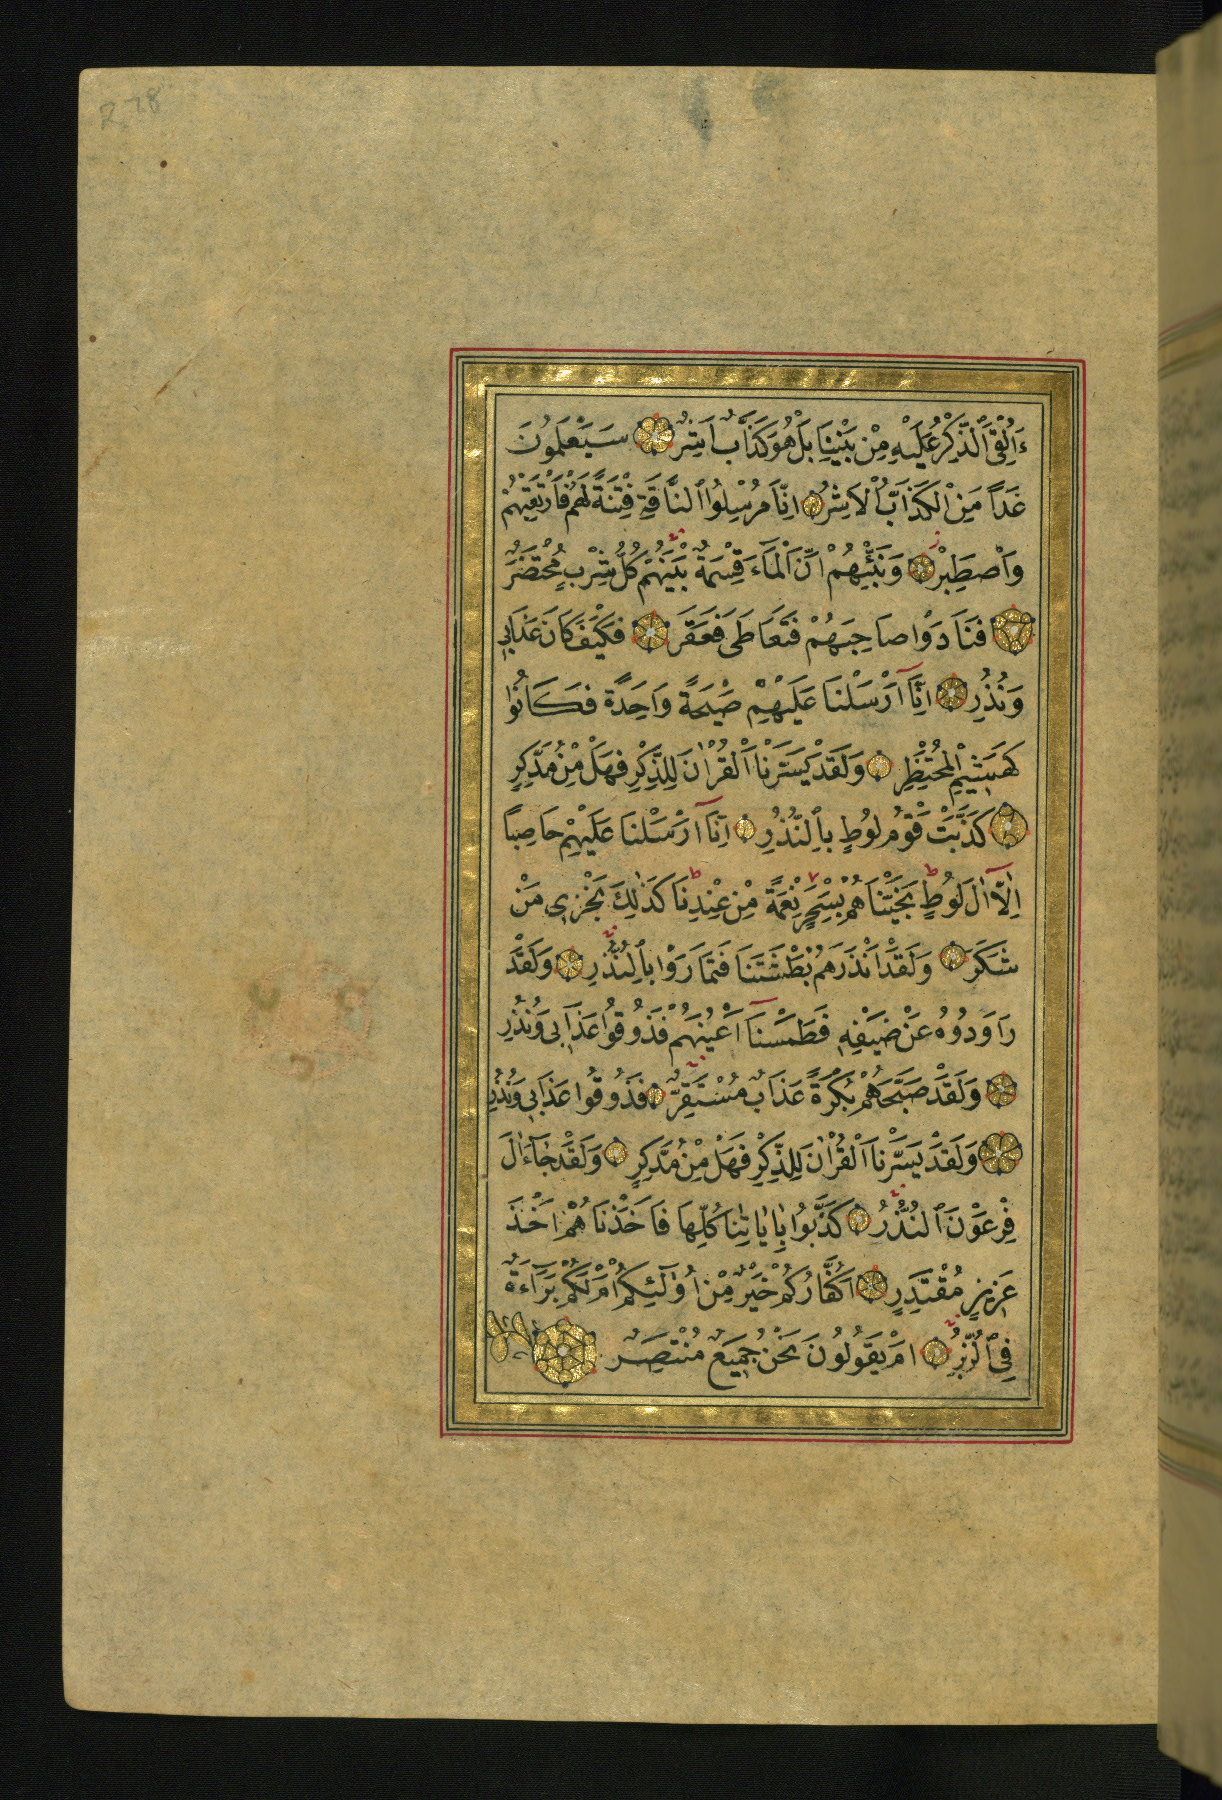 278
ءَاُلْقِىَ ٱلذِّكْرُ عَلَيْهِ مِنْ بَيْنِنَا بَلْ هُوَ كَذَّابٌ اَشِرٌ سَيَعْلَمُونَ
غَدًا مَنِ الْكَذَّابُ الْاَشِرُ اِنَّا مُرْسِلُوا ٱلنَّاقَةِ فِتْنَةً لَهُمْ فَارْتَقِبْهُمْ
وَاصْطَبِرْ وَنَبِّئْهُمْ اَنَّ الْمَآءَ قِسْمَةٌ بَيْنَهُمْ كُلُّ شِرْبٍ مُحْتَضَرٌ
فَنَادَوْا صَاحِبَهُمْ فَتَعَاطَى فَعَقَرَ فَكَيْفَ كَانَ عَذَابِى
وَنُذُرِ اِنَّآ اَرْسَلْنَا عَلَيْهِمْ صَيْحَةً وَاحِدَةً فَكَانُوا
كَهَشِيمِ الْمُحْتَظِرِ وَلَقَدْ يَسَّرْنَا الْقُرْاٰنَ لِلذِّكْرِ فَهَلْ مِنْ مُدَّكِرٍ
كَذَّبَتْ قَوْمُ لُوطٍ بِٱلنُّذُرِ اِنَّآ اَرْسَلْنَا عَلَيْهِمْ حَاصِبًا
اِلَّآ اٰلَ لُوطٍ نَجَّيْنَاهُمْ بِسَحَرٍ نِعْمَةً مِنْ عِنْدِنَا كَذٰلِكَ نَجْزِى مَنْ
شَكَرَ وَلَقَدْ اَنْذَرَهُمْ بَطْشَتَنَا فَتَمَارَوْا بِٱلنُّذُرِ وَلَقَدْ
رَاوَدُوهُ عَنْ ضَيْفِهِ فَطَمَسْنَآ اَعْيُنَهُمْ فَذُوقُوا عَذَابِى وَنُذُرِ
وَلَقَدْ صَبَّحَهُمْ بُكْرَةً عَذَابٌ مُسْتَقِرٌّ فَذُوقُوا عَذَابِى وَنُذُرِ
وَلَقَدْ يَسَّرْنَا الْقُرْاٰنَ لِلذِّكْرِ فَهَلْ مِنْ مُدَّكِرٍ وَلَقَدْ جَآءَ اٰلَ
فِرْعَوْنَ ٱلنُّذُرُ كَذَّبُوا بِاٰيَاتِنَا كُلِّهَا فَاَخَذْنَاهُمْ اَخْذَ
عَزِيزٍ مُقْتَدِرٍ اَكُفَّارُكُمْ خَيْرٌ مِنْ اُولٰٓئِكُمْ اَمْ لَكُمْ بَرَآءَةٌ
فِى ٱلزُّبُرِ اَمْ يَقُولُونَ نَحْنُ جَمِيعٌ مُنْتَصِرٌ